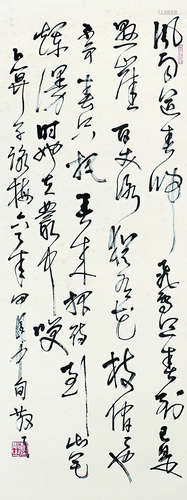 风雨送春归飞雪迎春到已是
悬崖百丈冰犹有花枝俏俏也不
争春只把春来报待到山花
烂漫时她在丛中笑
卜算子咏梅六三年四月中旬散之